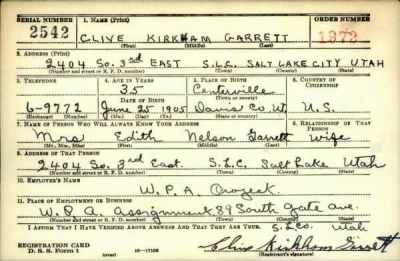 SERIAL NUMBER 1. NAME (Print) ORDER NUMBER
2542 CLIVE KIRKHAM GARRETT 1972
(First) (Middle) (Last)
2. ADDRESS (Print)
2404 So. 3rd EAST S.L.C. SALT LAKE CITY UTAH
(Number and street or R. F. D. number) (Town) (County) (State)
3. TELEPHONE 4. AGE IN YEARS 5. PLACE OF BIRTH 6. COUNTRY OF CITIZENSHIP
35 Centerville
DATE OF BIRTH (Town or county)
6-9772 June 25 1905 Davis Co. Ut. U.S.
(Exchange) (Number) (Mo.) (Day) (Yr.) (State or country)
7. NAME OF PERSON WHO WILL ALWAYS KNOW YOUR ADDRESS 8. RELATIONSHIP OF THAT PERSON
Mrs Edith Nelson Garrett wife
(Mr., Mrs., Miss) (First) (Middle) (Last)
9. ADDRESS OF THAT PERSON
2404 So. 3rd East S.L.C. Salt Lake Utah
(Number and street or R. F. D. number) (Town) (County) (State)
10. EMPLOYER'S NAME
W.P.A. Project
11. PLACE OF EMPLOYMENT OR BUSINESS
W.P.A. Assignment 89 South Gate ave.
(Number and street or R. F. D. number) (Town) (County) (State)
S.L.C. Utah
I AFFIRM THAT I HAVE VERIFIED ABOVE ANSWERS AND THAT THEY ARE TRUE.
REGISTRATION CARD
D. S. S. Form 1 (over) Clive Kirkham Garrett
(Registrant's signature)